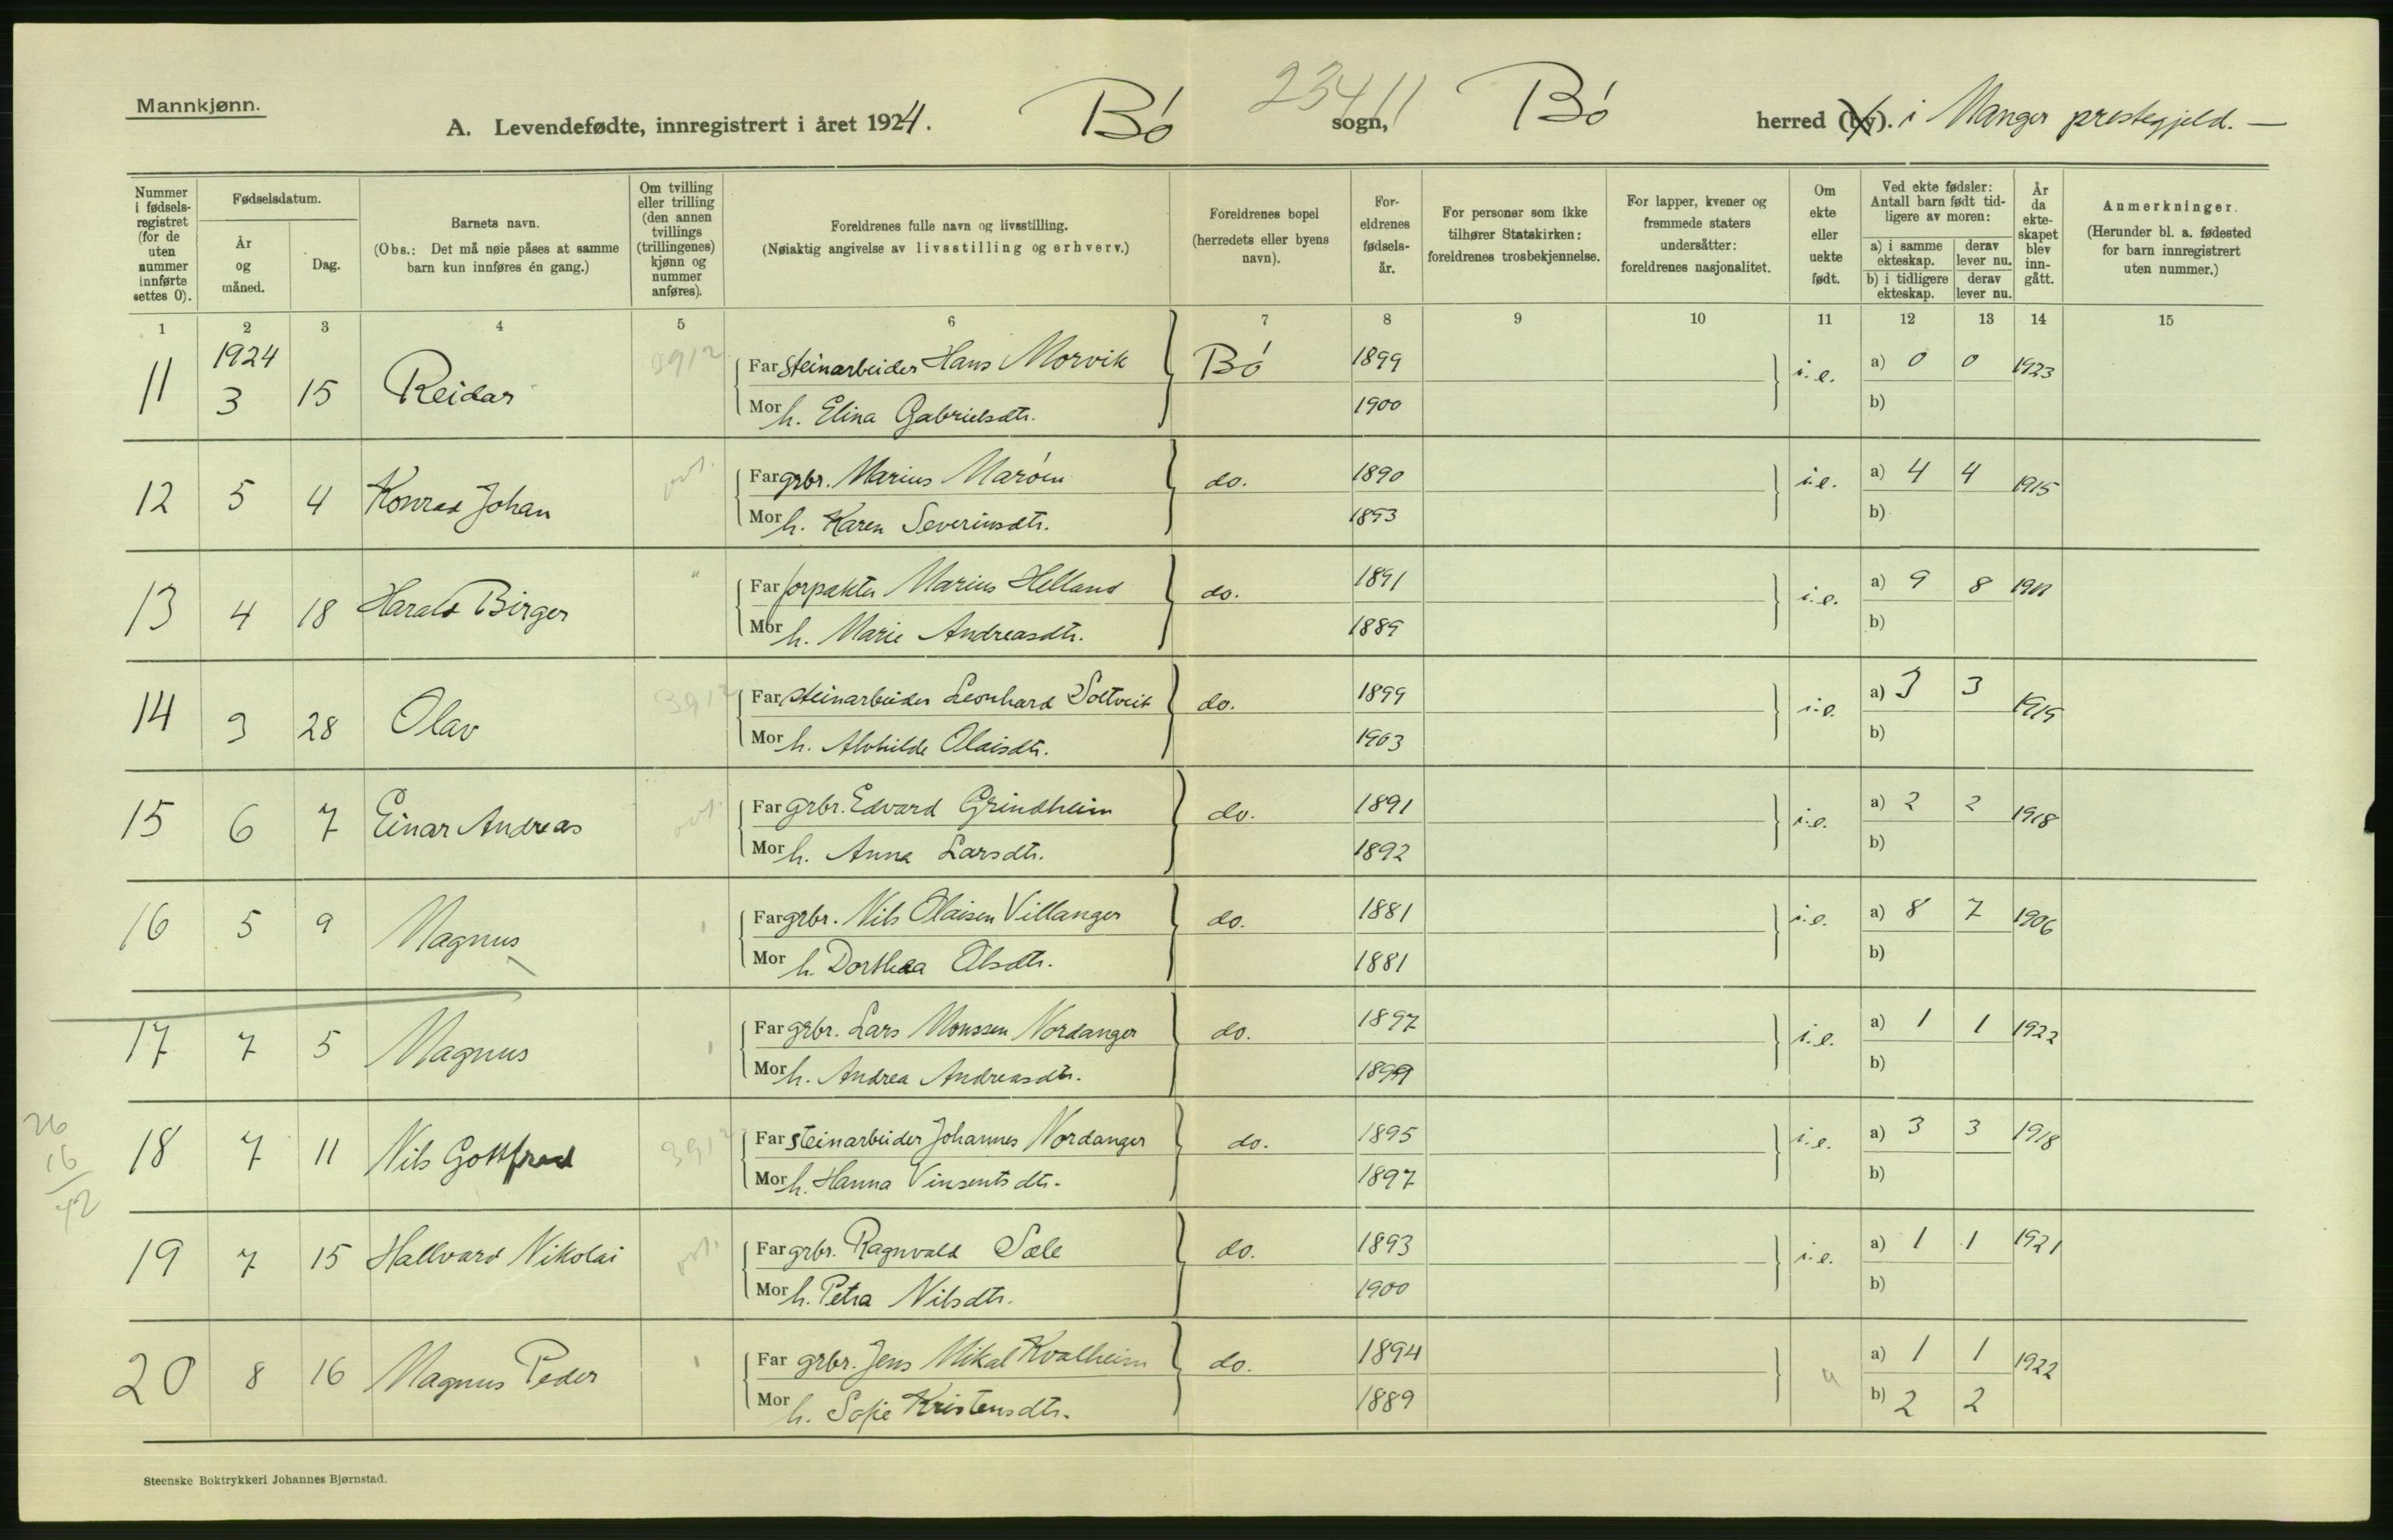 Mannkjønn.
A. Levendefødte, innregistrert i året 1924. Bö sogn, Bö herred (by). i Manger prestegjeld. —
23411
Nummer i fødselsregistret (for de uten nummer innførte settes 0).
Fødselsdatum.
År og måned.
Dag.
Barnets navn.
(Obs.: Det må nøie påses at samme barn kun innføres én gang.)
Om tvilling eller trilling (den annen tvillings (trillingenes) kjønn og nummer anføres).
Foreldrenes fulle navn og livsstilling.
(Nøiaktig angivelse av livsstilling og erhverv.)
Foreldrenes bopel (herredets eller byens navn).
Foreldrenes fødselsår.
For personer som ikke tilhører Statskirken: foreldrenes trosbekjennelse.
For lapper, kvener og fremmede staters undersåtter: foreldrenes nasjonalitet.
Om ekte eller uekte født.
Ved ekte fødsler: Antall barn født tidligere av moren:
a) i samme ekteskap. derav lever nu.
b) i tidligere ekteskap. derav lever nu.
År da ekteskapet blev inngått.
Anmerkninger.
(Herunder bl. a. fødested for barn innregistrert uten nummer.)
1 2 3 4 5 6 7 8 9 10 11 12 13 14 15
1924
11 3 15 Reidar 3912 Far Steinarbeider Hans Morvik Bö 1899 i.e. a) 0 0 1923
Mor h. Elina Gabrielsdtr. 1900 b)
12 5 4 Konrad Johan Far grbr. Marius Maröen do. 1890 i.e. a) 4 4 1915
Mor h. Karen Severinsdtr. 1893 b)
13 4 18 Harald Birger " Far forpakter Marius Helland do. 1891 i.e. a) 9 8
Mor h. Marie Andreasdtr. 1889 b)
14 3 28 Olav 3912 Far steinarbeider Leonhard Soltveit do. 1899 i.e. a) 3 3 1919
Mor h. Alvhilde Olaisdtr. 1903 b)
15 6 7 Einar Andreas Far grbr. Edvard Grindheim do. 1891 i.e. a) 2 2 1918
Mor h. Anna Larsdtr. 1892 b)
16 5 9 Magnus Far grbr. Nils Olaisen Villanger do. 1881 i.e. a) 8 7 1906
Mor h. Dorthea Olsdtr. 1881 b)
17 7 5 Magnus Far grbr. Lars Monssen Nordanger do. 1897 i.e. a) 1 1 1922
Mor h. Andrea Andreasdtr. 1899 b)
26
16
42
18 7 11 Nils Gottfred 3912 Far Steinarbeider Johannes Nordanger do. 1895 i.e. a) 3 3 1918
Mor h. Hanna Vinsentsdtr. 1897 b)
19 7 15 Hallvard Nikolai Far grbr. Ragnvald Sæle do. 1893 i.e. a) 1 1 1921
Mor h. Petra Nilsdtr. 1900 b)
20 8 16 Magnus Peder Far grbr. Jens Mikal Kvalheim do. 1894 " a) 1 1 1922
Mor h. Sofie Kristensdtr. 1889 b) 2 2
Steenske Boktrykkeri Johannes Bjørnstad.